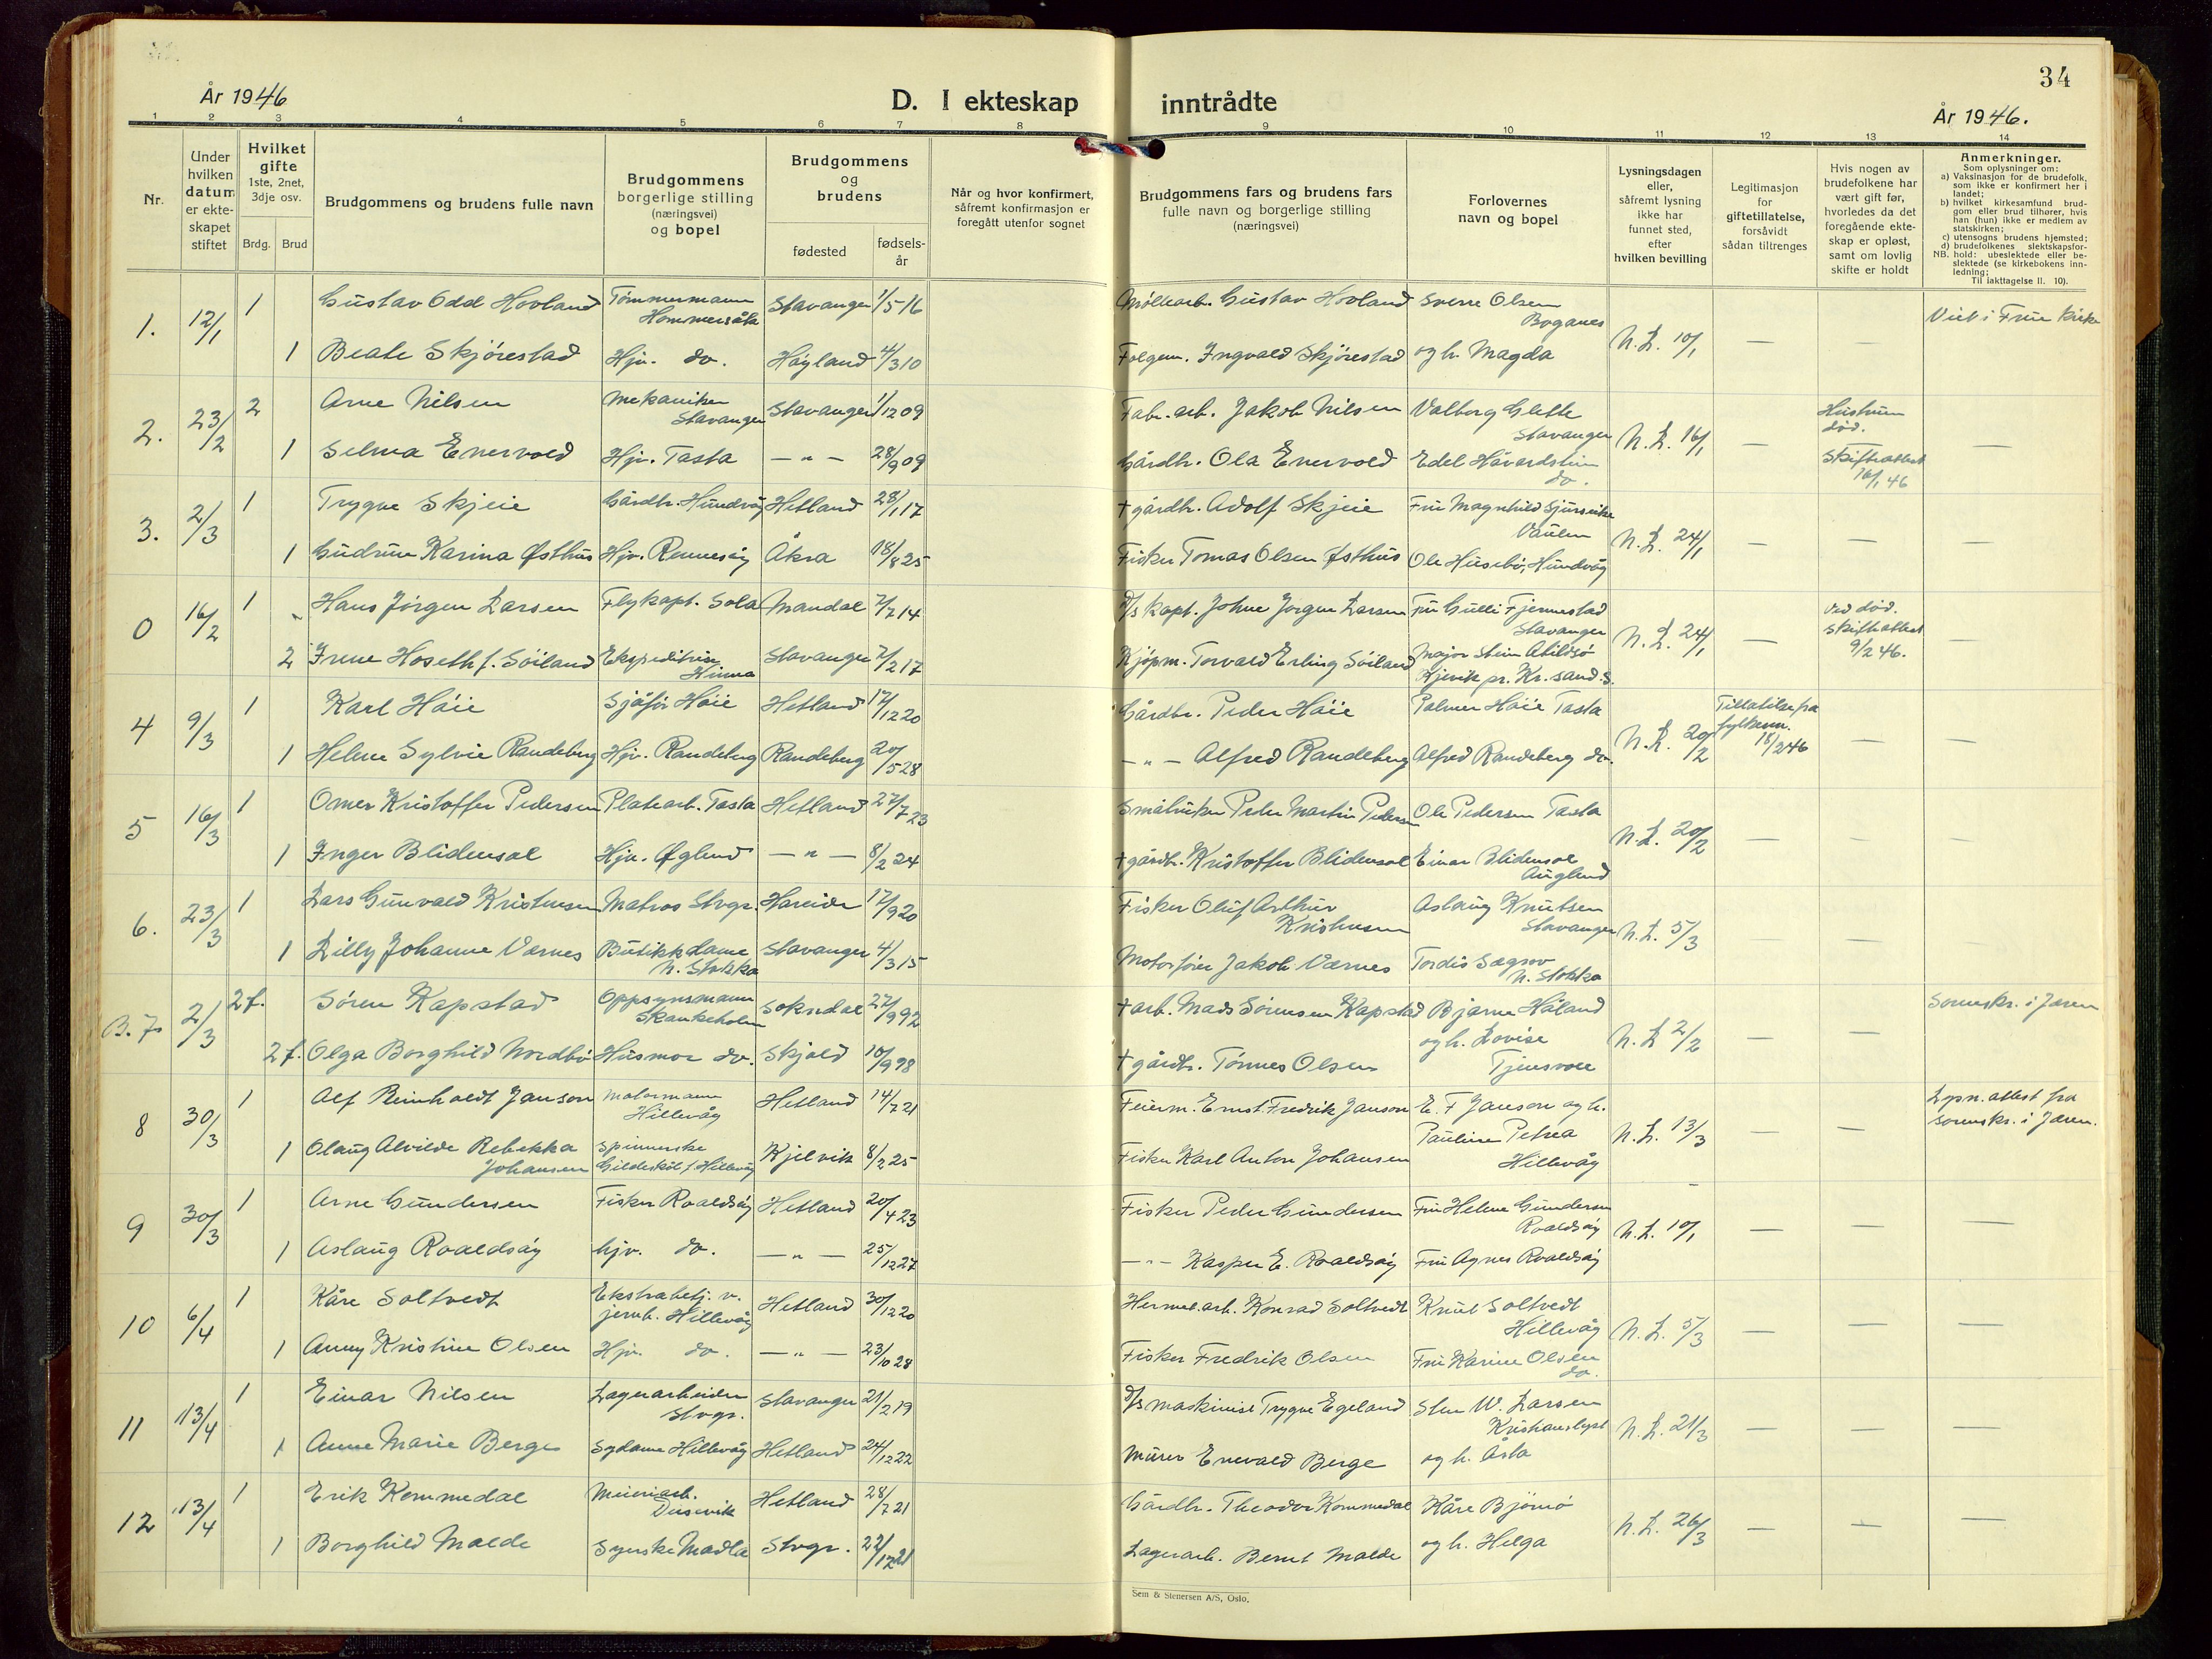 34
År 1946
D. I ekteskap inntrådte
År 1946.
1 2 3 4 5 6 7 8 9 10 11 12 13 14
Nr.
Under hvilken datum er ekte-skapet stiftet
Hvilket gifte
1ste, 2net, 3dje osv.
Brdg. Brud
Brudgommens og brudens fulle navn
Brudgommens borgerlige stilling (næringsvei) og bopel
Brudgommens og brudens
fødested
fødsels-år
Når og hvor konfirmert, såfremt konfirmasjon er foregått utenfor sognet
Brudgommens fars og brudens fars fulle navn og borgerlige stilling (næringsvei)
Forlovernes navn og bopel
Lysningsdagen eller, såfremt lysning ikke har funnet sted, efter hvilken bevilling
Legitimasjon for giftetillatelse, forsåvidt sådan tiltrenges
Hvis nogen av brudefolkene har vært gift før, hvorledes da det foregående ekte-skap er opløst, samt om lovlig skifte er holdt
Anmerkninger.
Som oplysninger om:
a) Vaksinasjon for de brudefolk, som ikke er konfirmert her i landet;
b) hvilket kirkesamfund brud-gom eller brud tilhører, hvis han (hun) ikke er medlem av statskirken;
c) utensogns brudens hjemsted;
d) brudefolkenes slektskapsfor-hold: ubeslektede eller be-slektede (se kirkebokens inn-ledning;
NB.
Til iakttagelse II. 10).
1. 12/1 1 Gustav Odd Hovland Tømmermann Hommersåk Stavanger 1/5 16 Møllearb. Gustav Hovland Sverre Olsen Boganes N.L. 10/1 — — Viet i Frue Kirke
1 Beate Skjørestad Hjv. do. Høyland 4/3 10 Ingvald Skjørestad og h. Magda
2. 23/2 2 Arne Nilsen Mekaniker Stavanger Stavanger 1/12 09 Fab.arb. Jakob Nilsen Valborg Glette Stavanger N.L. 16/1 — Hustruen død. Skifteattest 16/1 46 —
1 Selma Enervold Hjv. Tasta —„— 28/9 09 Gårdbr. Ola Enervold Edel Håvardstun do.
3. 2/3 1 Trygve Skjeie Gårdbr. Hundvåg Hetland 28/1 17 † gårdbr. Adolf Skjeie Fru Magnhild Vaulen N.L. 24/1 — — —
1 Gudrun Karina Østhus Hjv. Rennesøy Åkra 18/8 25 Fisker Tomas Olsen Østhus Ole Husebø, Hundvåg
0 16/2 1 Hans Jørgen Larsen Flykapt. Sola Mandal 7/7 14 D/s kapt. Johne Jørgen Larsen Fru Gulli Fjermestad Stavanger N.L. 24/1 — Ved død. Skifteattest 9/2 46. —
2 Irene Hoseth f. Søiland Ekspeditrise Hinna Stavanger 7/2 17 Kjøpm. Torvald Erling Søiland Major Stein Abildsø Kjevik pr. Kr.sand S.
4 9/3 1 Karl Håie Sjåfør Håie Hetland 17/12 20 Gårdbr. Peder Håie Palmer Håie Tasta N.L. 20/2 Tillatelse fra fylkesm. 18/2 46 — —
1 Helene Sylvie Randeberg Hjv. Randeberg Randeberg 20/5 28 —„— Alfred Randeberg Alfred Randeberg do.
5 16/3 1 Omer Kristoffer Pedersen Platearb. Tasta Hetland 27/7 23 Småbruker Peder Martin Pedersen Ole Pedersen Tasta N.L. 20/2 — — —
1 Inger Blidensol Hjv. Øglend —„— 8/2 24 † gårdbr. Kristoffer Blidensol Einar Blidensol Auglend
6. 23/3 1 Lars Gunvald Kristensen Matros Stvgr. Hareide 17/9 20 Fisker Oluf Arthur Kristensen Aslaug Knutsen Stavanger N.L. 5/3 — — —
1 Lilly Johanne Værnes Butikkdame N. Stokka Stavanger 4/3 15 Motorfører Jakob Værnes Tordis Sægrov N. Stokka
B. 7. 2/3 2 f. Søren Kapstad Oppsynsmann Skankeholm Sokndal 27/9 92 † arb. Mads Sørensen Kapstad Bjarne Håland N.L. 2/2 — — Sorenskr. i Jæren
2 f. Olga Borghild Nordbø Husmor do. Skjold 10/9 98 † gårdbr. Tønnes Olsen og h. Lovise Tjensvoll
8 30/3 1 Alf Reinholdt Janson Motormann Hillevåg Hetland 14/7 21 Feierm. Ernst Fredrik Janson E. F Janson og h. Pauline Petrea Hillevåg N.L. 13/3 — — Lysn.attest fra sorenskr. i Jæren.
1 Olaug Alvilde Rebekka Johansen Spinnerske Gildeskål f. Hillevåg Kjelvik 8/2 25 Fisker Karl Anton Johansen
9 30/3 1 Arne Gundersen Fisker Roaldsøy Hetland 20/4 23 Fisker Peder Gundersen Fru Helene Gundersen Roaldsøy N.L. 10/1 — — —
1 Aslaug Roaldsøy hjv. do. —„— 25/12 27 —„— Kasper E. Roaldsøy Fru Agnes Roaldsøy
10 6/4 1 Kåre Soltvedt Ekstrabetj. v. jernb. Hillevåg Hetland 30/12 20 Hermet.arb. Konrad Soltvedt Knut Soltvedt Hillevåg N.L. 5/3 — — —
1 Anny Kristine Olsen Hjv. do. —„— 23/10 28 Fisker Fredrik Olsen Fru Karine Olsen do.
11 13/4 1 Einar Nilsen Lagerarbeider Stvgr. Stavanger 21/2 19 D/s maskinist Trygve Egeland Sten W. Larsen Kristianslyst N.L. 21/3 — — —
1 Anne Marie Berge Sydame Hillevåg Hetland 24/12 22 Murer Enevald Berge og h. Åsta
12 13/4 1 Erik Kommedal Meieriarb. Dusevik Hetland 28/7 21 Gårdbr. Theodor Kommedal Kåre Bjørnø N.L. 26/3 — — —
1 Borghild Malde Syerske Madla Stvgr. 22/12 21 Lagerarb. Bernt Malde og h. Helga
Sem & Stenersen A/S, Oslo.